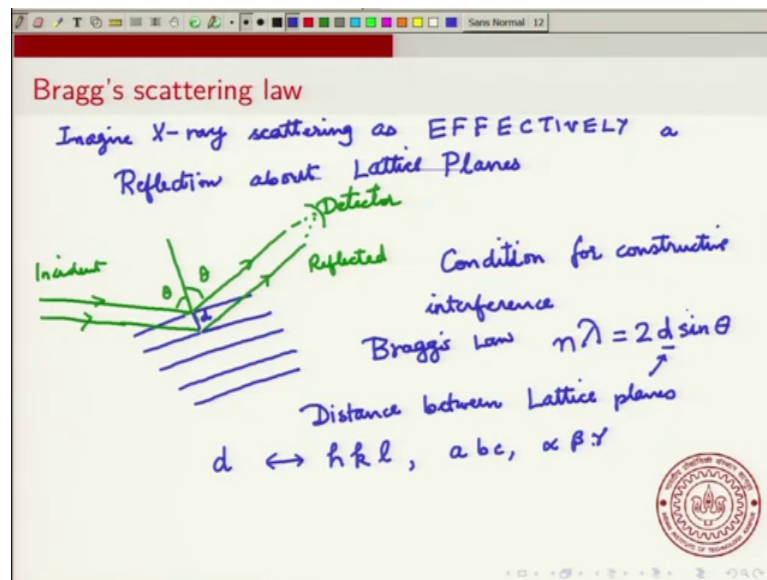 T
Sans Normal 12
Bragg's scattering law
Imagine X-ray scattering as EFFECTIVELY a
Reflection about Lattice Planes
Detector
Incident
θ θ
Reflected
d
Condition for constructive
interference
Bragg's Law nλ = 2 d sin θ
Distance between Lattice planes
d ↔ h k l, a b c, α β γ